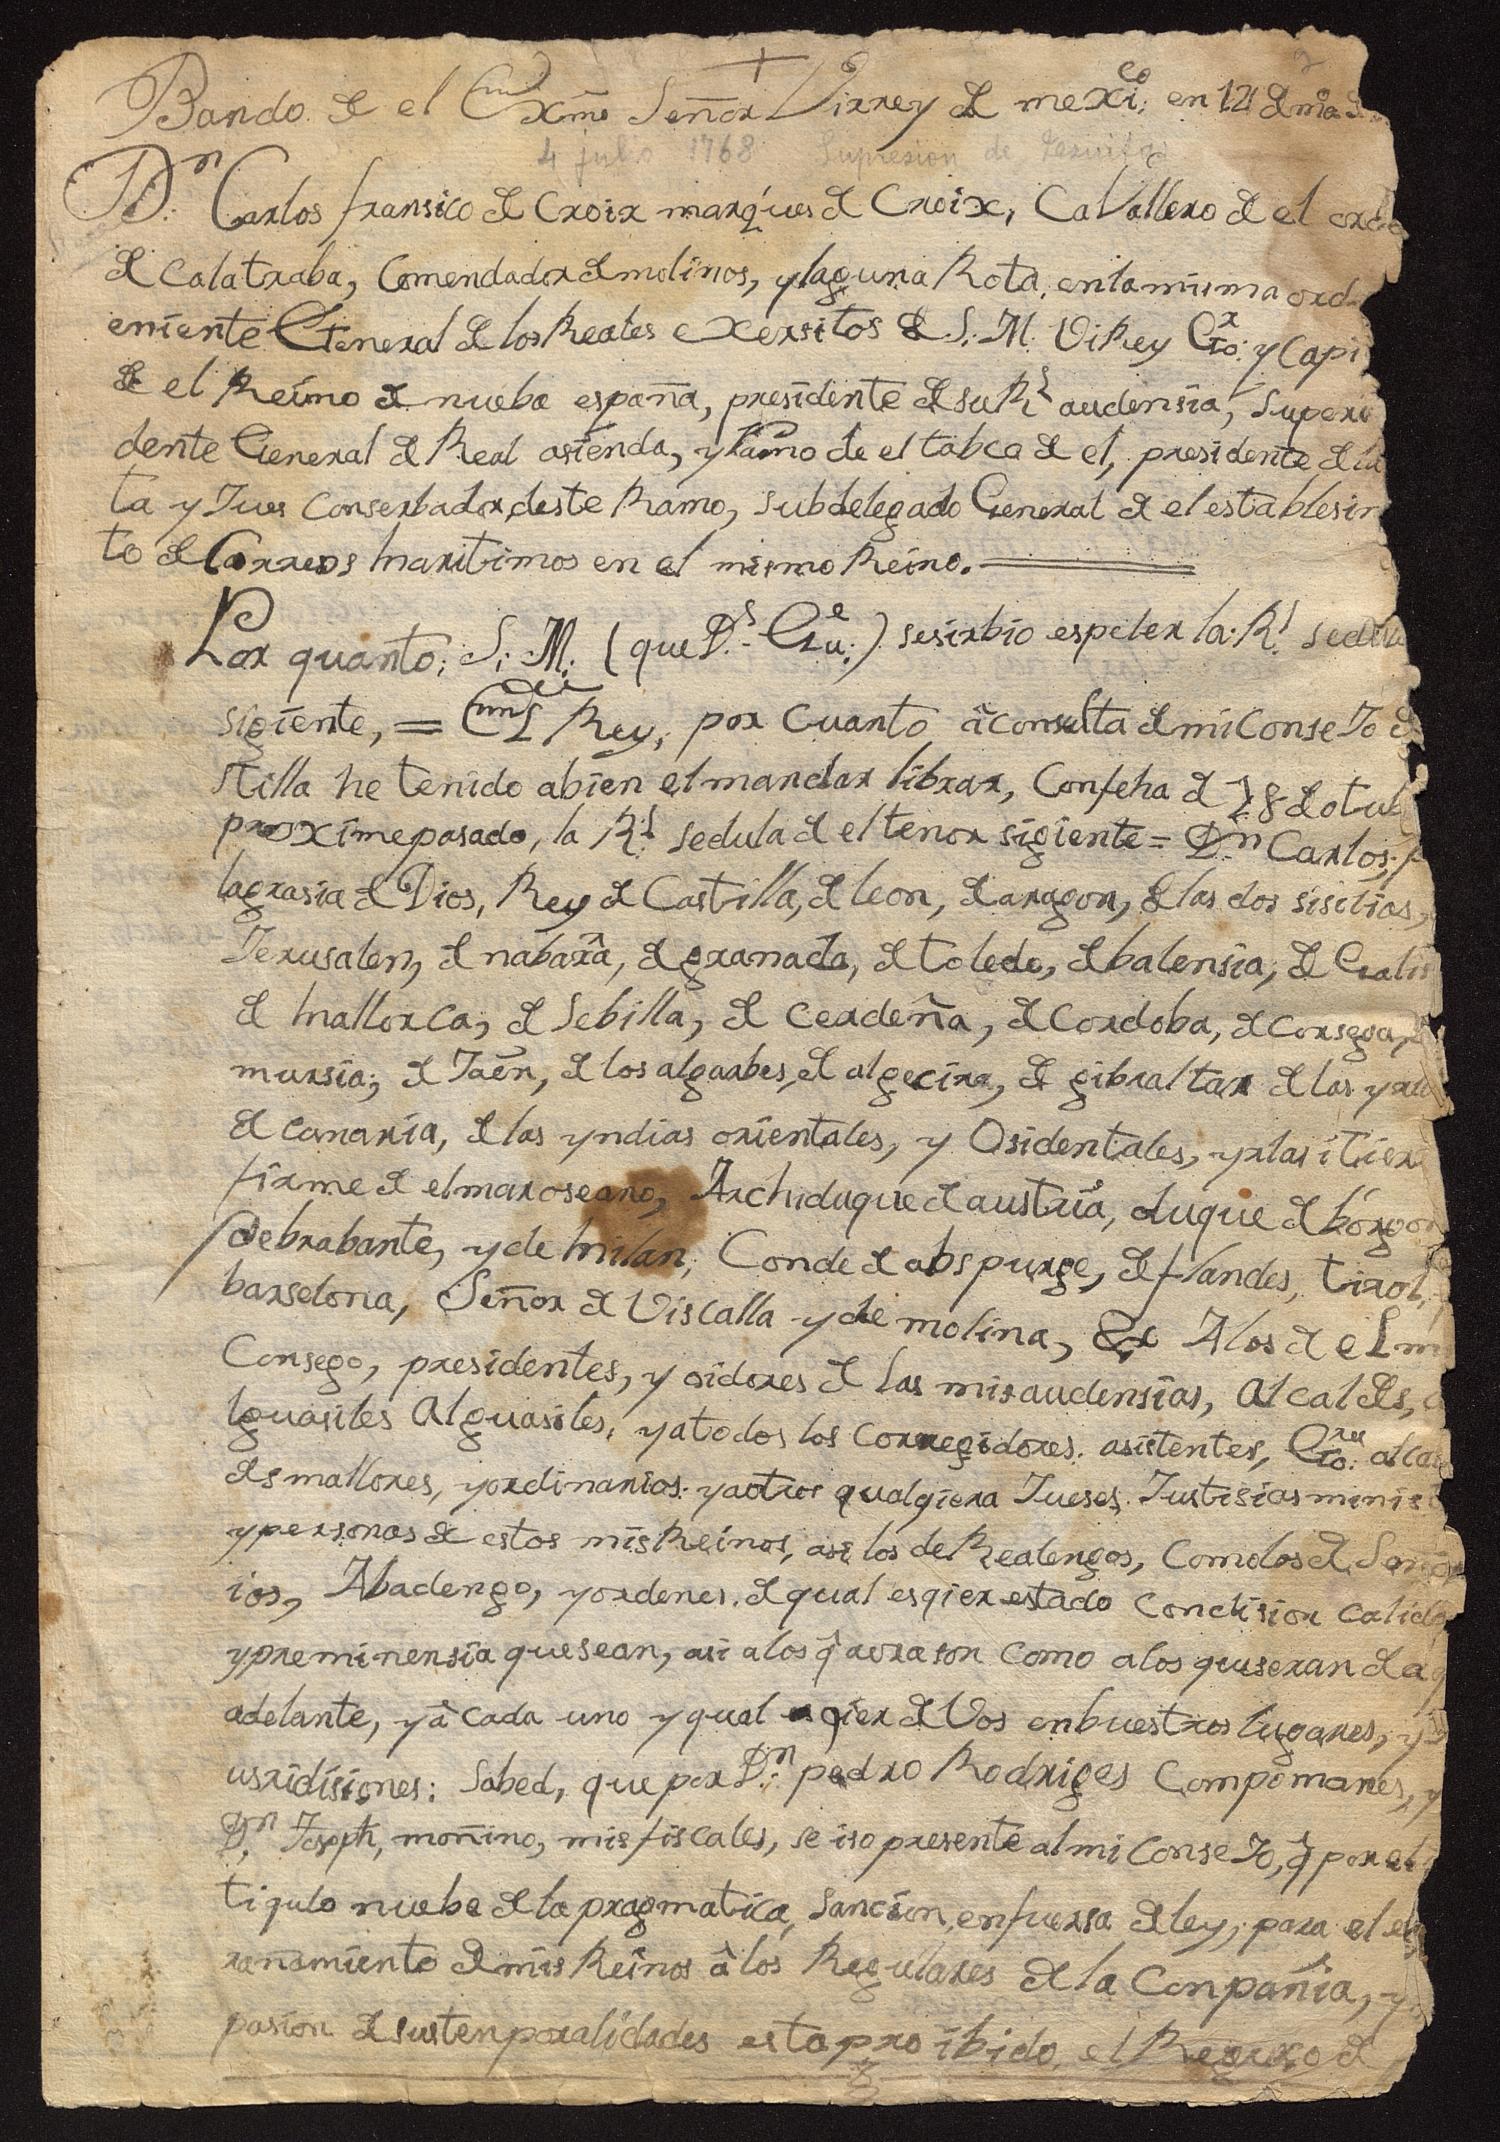 Bando de el Exmo Señor Virrey de mexico: en 12 de
4 julio 1768 Supresion de Jesuitas
Dn Carlos fransico de Croix marques de Croix, Cavallero de el orde
de calatraba, Comendador de molinos, y laguna Rota, en la misma ord
eniente General de los Reales exersitos de S. M. ViRey Gor y Capi
de el Reino de nueba españa, presidente de su Rl audensia, Superi
dente General de Real asienda, y Ramo de el tabco de el, presidente de la
ta y Jues Conserbador deste Ramo, subdelegado General de el establesim
to de Correos maritimos en el mismo Reino.
Por quanto; S. M. (que Ds. Gue.) se sirbio espeler la Rl sedula
sigiente, = El Rey, por cuanto â consulta de mi conseJo de
stilla he tenido abien el mandar librar, Con feha de 18 de otub
proxime pasado, la Rl sedula de el tenor sigiente = Dn Carlos, p
la grasia de Dios, Rey de Castilla, de leon, de aragon, de las dos sisilias,
Jerusalen, de nabara, de granada, de toledo, de balensia, de Galis
de mallorca, de Sebilla, de cerdeña, de cordoba, de corsega,
mursia; de Jaen, de los algarbes, de algecira, de gibraltar de las yslas
de canaria, de las yndias orientales, y Osidentales, yslas i tierr
firme de el mar oseano, Archiduque de austria, duque de borgo
de brabante, y de milan, Conde de abspurge, de flandes, tirol,
barselona, Señor de Viscalla y de molina, &c A los de el m
Consego, presidentes, y oidores de las mis audensias, Alcaldes,
lguasiles Alguasiles, y a todos los corregidores. asistentes, alca
des mallores, y ordinarios. y a otros qualgiera Jueses. Justisias minis
y personas de estos mis Reinos, asi los de Realengos, como los de Señor
ios, Abadengo, y ordenes. de qual esqier estado condision calida
y preminensia que sean, asi a los q̂ aora son como a los que seran de aq
adelante, y â cada uno y qual esqier de Vos en buestros lugares, y
usridisiones: Sabed, que por Dn pedro Rodriges Compomanes, y
Dn Joseph, moñino, mis fiscales, se iso presente al mi conseJo, q̂ por el
tiqulo nuebe de la pragmatica, sancion, en fuersa de ley, para el es
rañamiento de mis Reinos â los Regulares de la Conpañia, y
pasion de sus tenporalidades esta proibido, el Regreso de